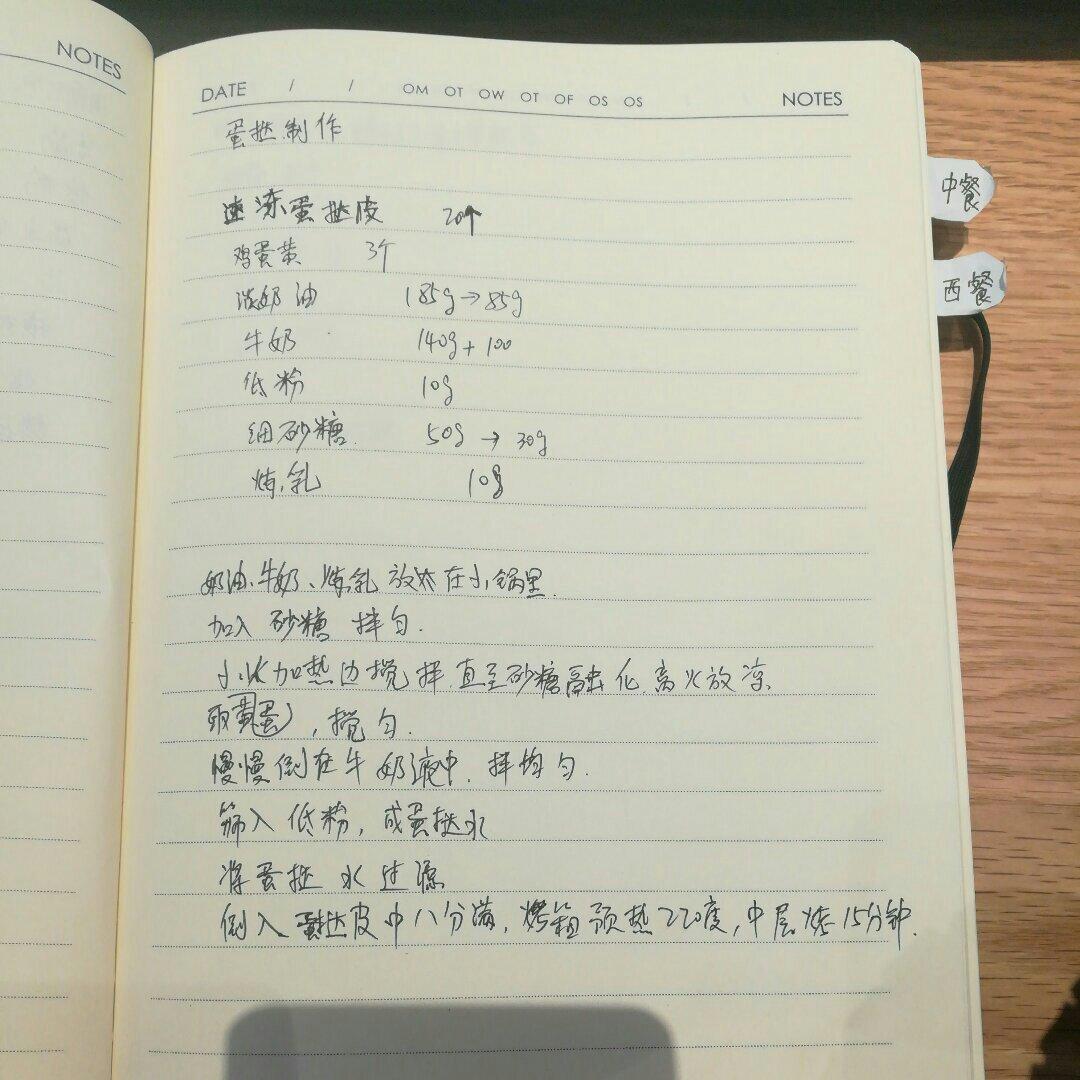 NOTES
DATE / / OM OT OW OT OF OS OS NOTES
蛋挞制作
速冻蛋挞皮 20个
鸡蛋黄 3个
淡奶油 185g→85g
牛奶 140g+100
低粉 10g
细砂糖 50g→30g
炼乳 10g
奶油、牛奶、炼乳 放在小锅里
加入砂糖 拌匀.
小火加热边搅拌直至砂糖融化离火放凉
取黄蛋,搅匀.
慢慢倒在牛奶液中.拌均匀.
筛入低粉,成蛋挞水
将蛋挞水过滤
倒入蛋挞皮中八分满,烤箱预热220度,中层烤15分钟.
中餐
西餐